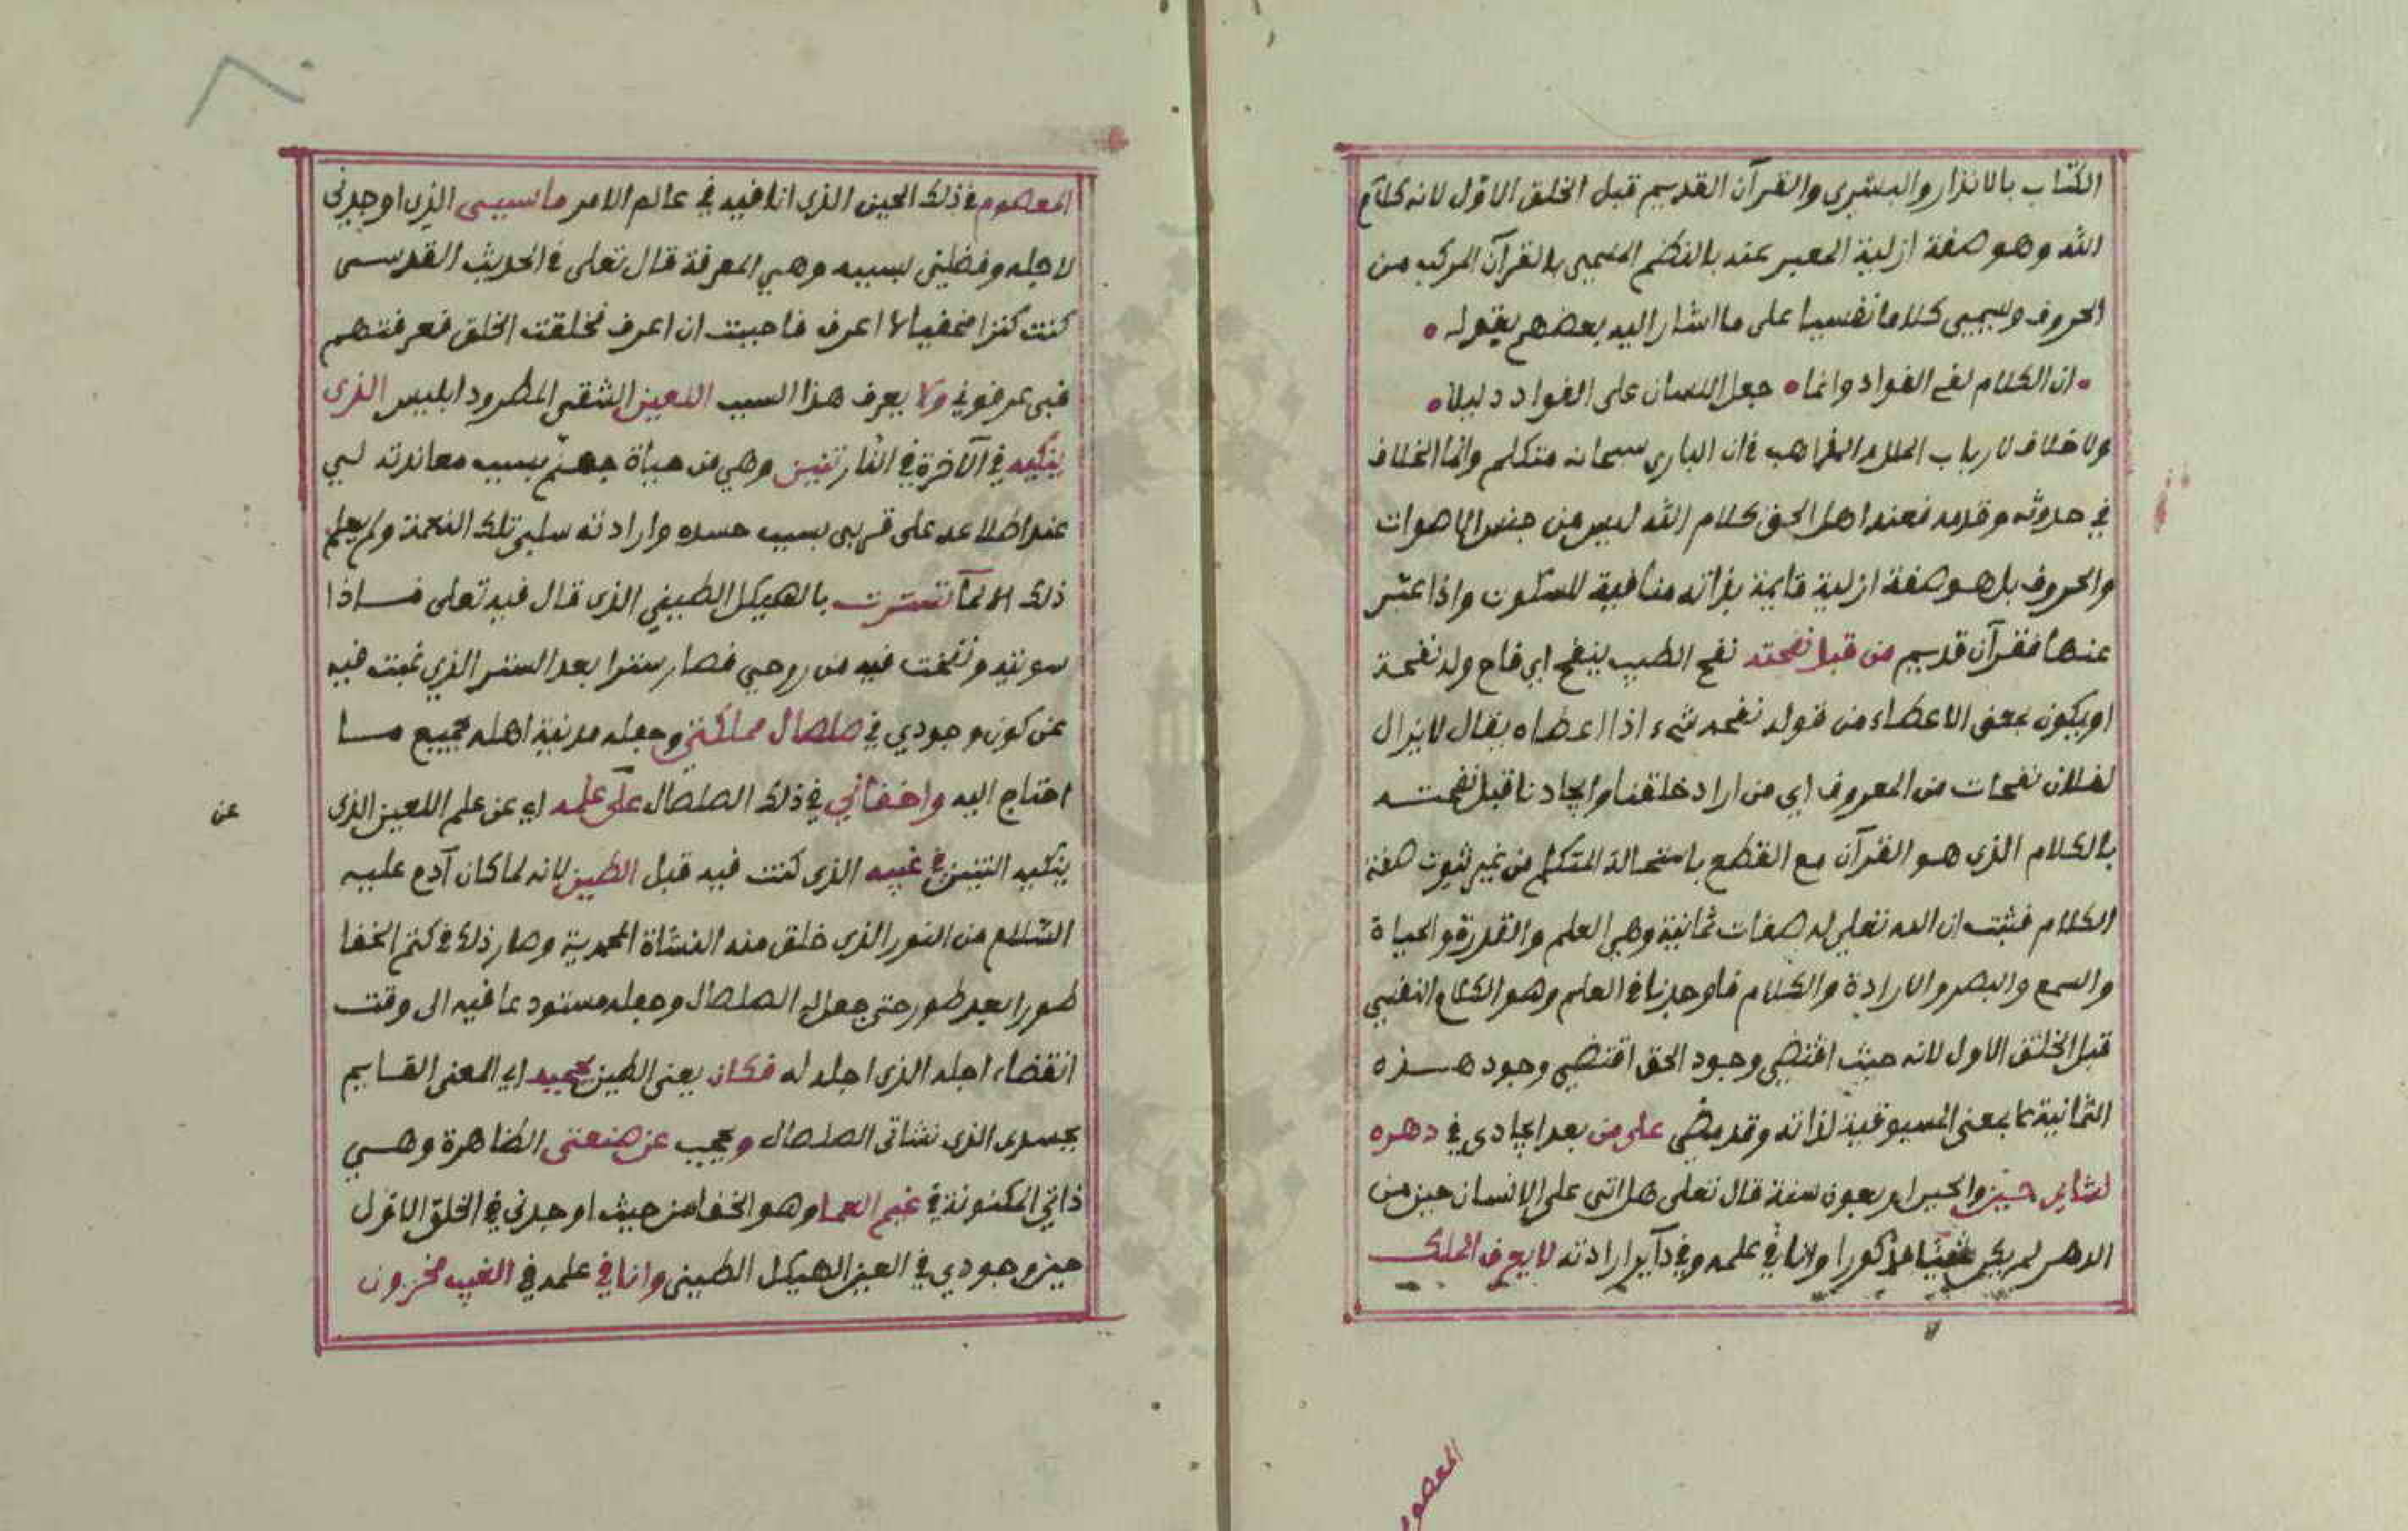 الكتاب بالانذار والبشرى والقرآن القديم قبل الخلق الاوّل لانه كلام
الله وهو صفة ازلية المعبر عنه بالنظم المسمى بالقرآن المركب من
الحروف ويسمى كلاما نفسيا على ما اشار اليه بعضهم بقوله •
• ان الكلام لفي الفواد وانما • جعل اللسان على الفواد دليلا •
ولا خلاف لارباب الملل والمذاهب في ان الباري سبحانه متكلم وانما الخلاف
في حدوثه وقدمه فعند اهل الحق كلام الله ليس من جنس الاصوات
والحروف بل هو صفة ازلية قايمة بذاته منافية للسكون واذا عبّر
عنها فقرآن قديم من قبل نفحته نفح الطيب ينفح اي فاح وله نفحة
او يكون بمعنى الاعطاء من قوله نفحه شيء اذا اعطاه يقال لا يزال
لفلان نفحات من المعروف اي من اراد خلقنا وايجادنا قبل نفحته
بالكلام الذي هو القرآن مع القطع باستحالة المتكلم من غير ثبوت صفة
الكلام فثبت ان الله تعلى له صفات ثمانية وهي العلم والقدرة والحياة
والسمع والبصر والارادة والكلام فاوجدنا في العلم وهو الكلام النفسي
قبل الخلق الاول لانه حيث اقتضى وجود الحق اقتضى وجود هذه
الثمانية بمعنى المسبوقية لذاته وقد مضى على من بعد ايجادي في دهره
لشاني حين والحين اربعون سنة قال تعلى هل اتى على الانسان حين من
الدهر لم يكن شيئا مذكورا وانا في علمه وفي ارادته لا يعرف الملك
المعصوم
المعصوم في ذلك الحين الذي انا فيه في عالم الامر ما سببى الذي اوجدني
لاجله وفضلني بسببه وهي المعرفة قال تعلى في الحديث القدسي
كنت كنزا مخفيا لا اعرف فاحببت ان اعرف فخلقت الخلق فعرفتهم
فبي عرفوني ولا يعرف هذا السبب اللعين الشقى المطرود ابليس الذي
ينكيه في الآخرة في النار تنين وهي من حياة جهنم بسبب معاندته لي
عند اطلاعه على قربي بسبب حسده وارادته سلبي تلك النعمة ولم يعلم
ذلك الا لما تسترت بالهيكل الطيني الذي قال فيه تعلى فاذا
سويته ونفخت فيه من روحي فصار سترا بعد الستر الذي غبت فيه
عن كون وجودي في صلصال مملكتي وجعله مدينة اهله بجميع ما
احتاج اليه واخفاني في ذلك الصلصال على علمه اي عن علم اللعين الذي
عن
ينكيه التنين في غيبه الذي كنت فيه قبل الطين لانه لما كان آدم عليه
السّلام من النور الذي خلق منه النشاة المحمدية وصار ذلك في كتم الخفا
طورا بعد طور حتى جعل له الصلصال وجعله مستودعا فيه الى وقت
انقضاء اجله الذي اجله له فكان يعنى الطين اي المعنى القايم
بجسدى الذي نشاتى الصلصال ويحجب عن صنعتى الظاهرة وهي
ذاتي المكنونة في غيم العما وهو الخفا من حيث اوجدني في الخلق الاول
حين وجودي في العين الهيكل الطيني وانا في علمه في الغيب مخزون